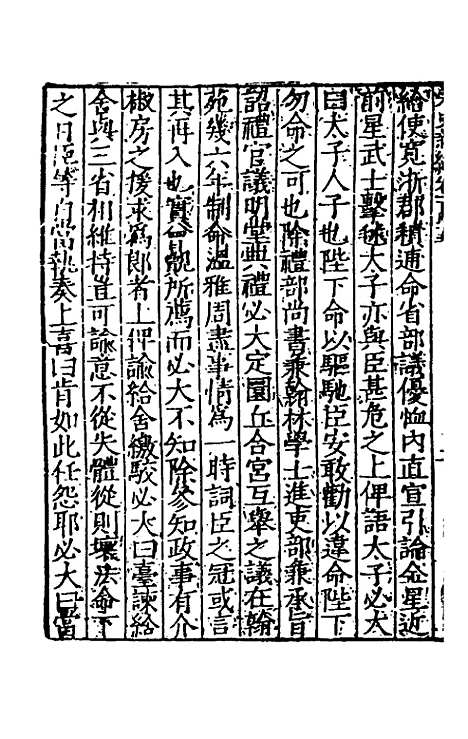 給使寬浙郡積逋命省部議優恤内直宣引論金星近
前星武士擊毬太子亦與臣甚危之上俾語太子必大
曰太子人子也陛下命以驅馳臣安敢勸以違命陛下
勿命之可也除禮部尚書兼翰林學士進吏部兼承旨
詔禮官議明堂典禮必大定圜丘合宮互舉之議在翰
苑幾六年制命溫雅周盡事情為一時詞臣之冠或言
其再入也實曾覿所薦而必大不知除參知政事有介
椒房之援求為郎者上俾諭給舍繳駁必大曰臺諫給
舍與三省相維持豈可諭意不從失體從則壞法命下
之日臣等自當執奏上喜曰肯如此任怨耶必大曰當